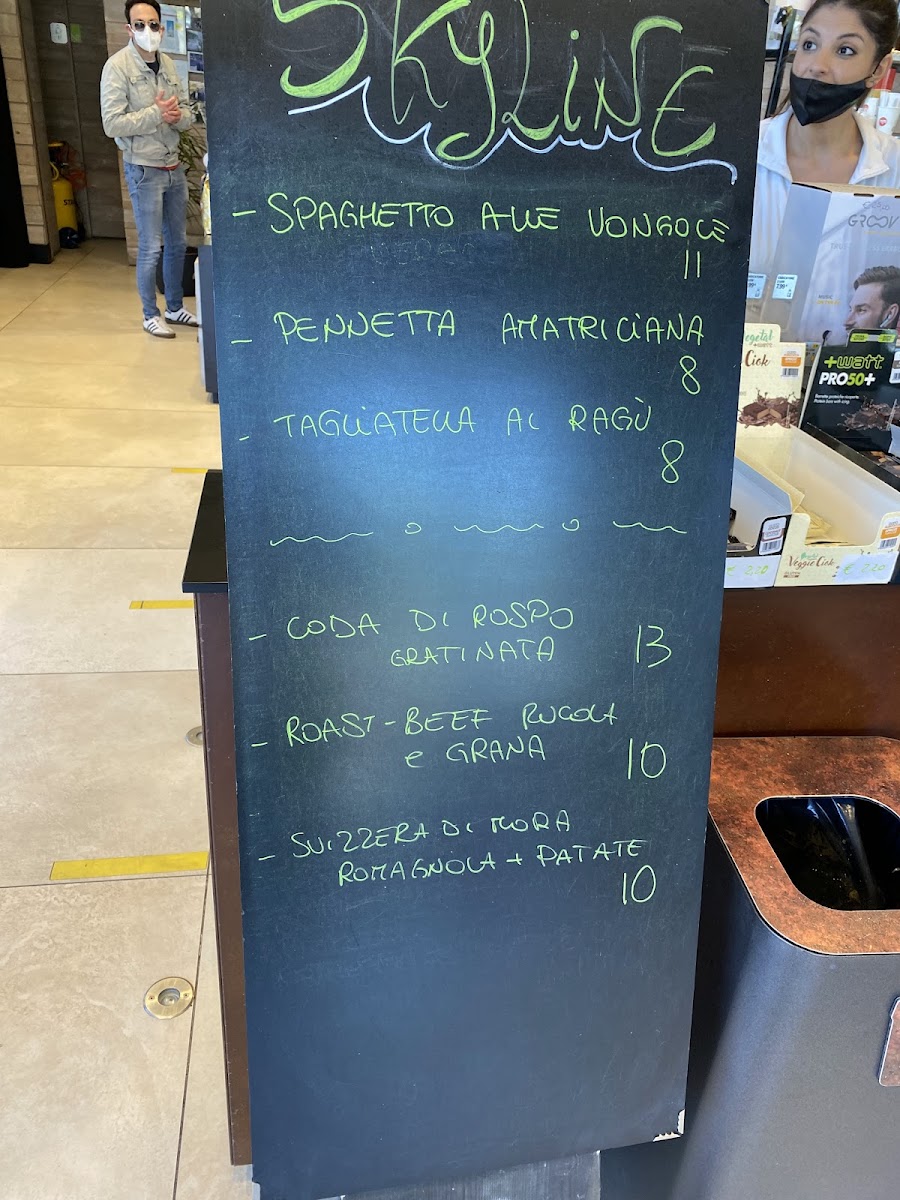 SKYLINE
- SPAGHETTO ALLE VONGOLE
11
- PENNETTA AMATRICIANA
8
- TAGLIATELLA AL RAGÙ
8
- CODA DI ROSPO
GRATINATA 13
- ROAST-BEEF RUCOLA
e GRANA 10
- SVIZZERA DI MORA
ROMAGNOLA + PATATE
10
GROOV
Vegetal
Ciok
+WATT
PRO50+
Veggie Ciok
€ 2,20
€ 2,20